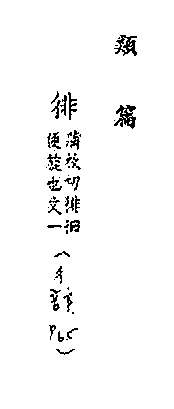 類篇
徘
蒲枚切徘徊
便旋也文一
P65